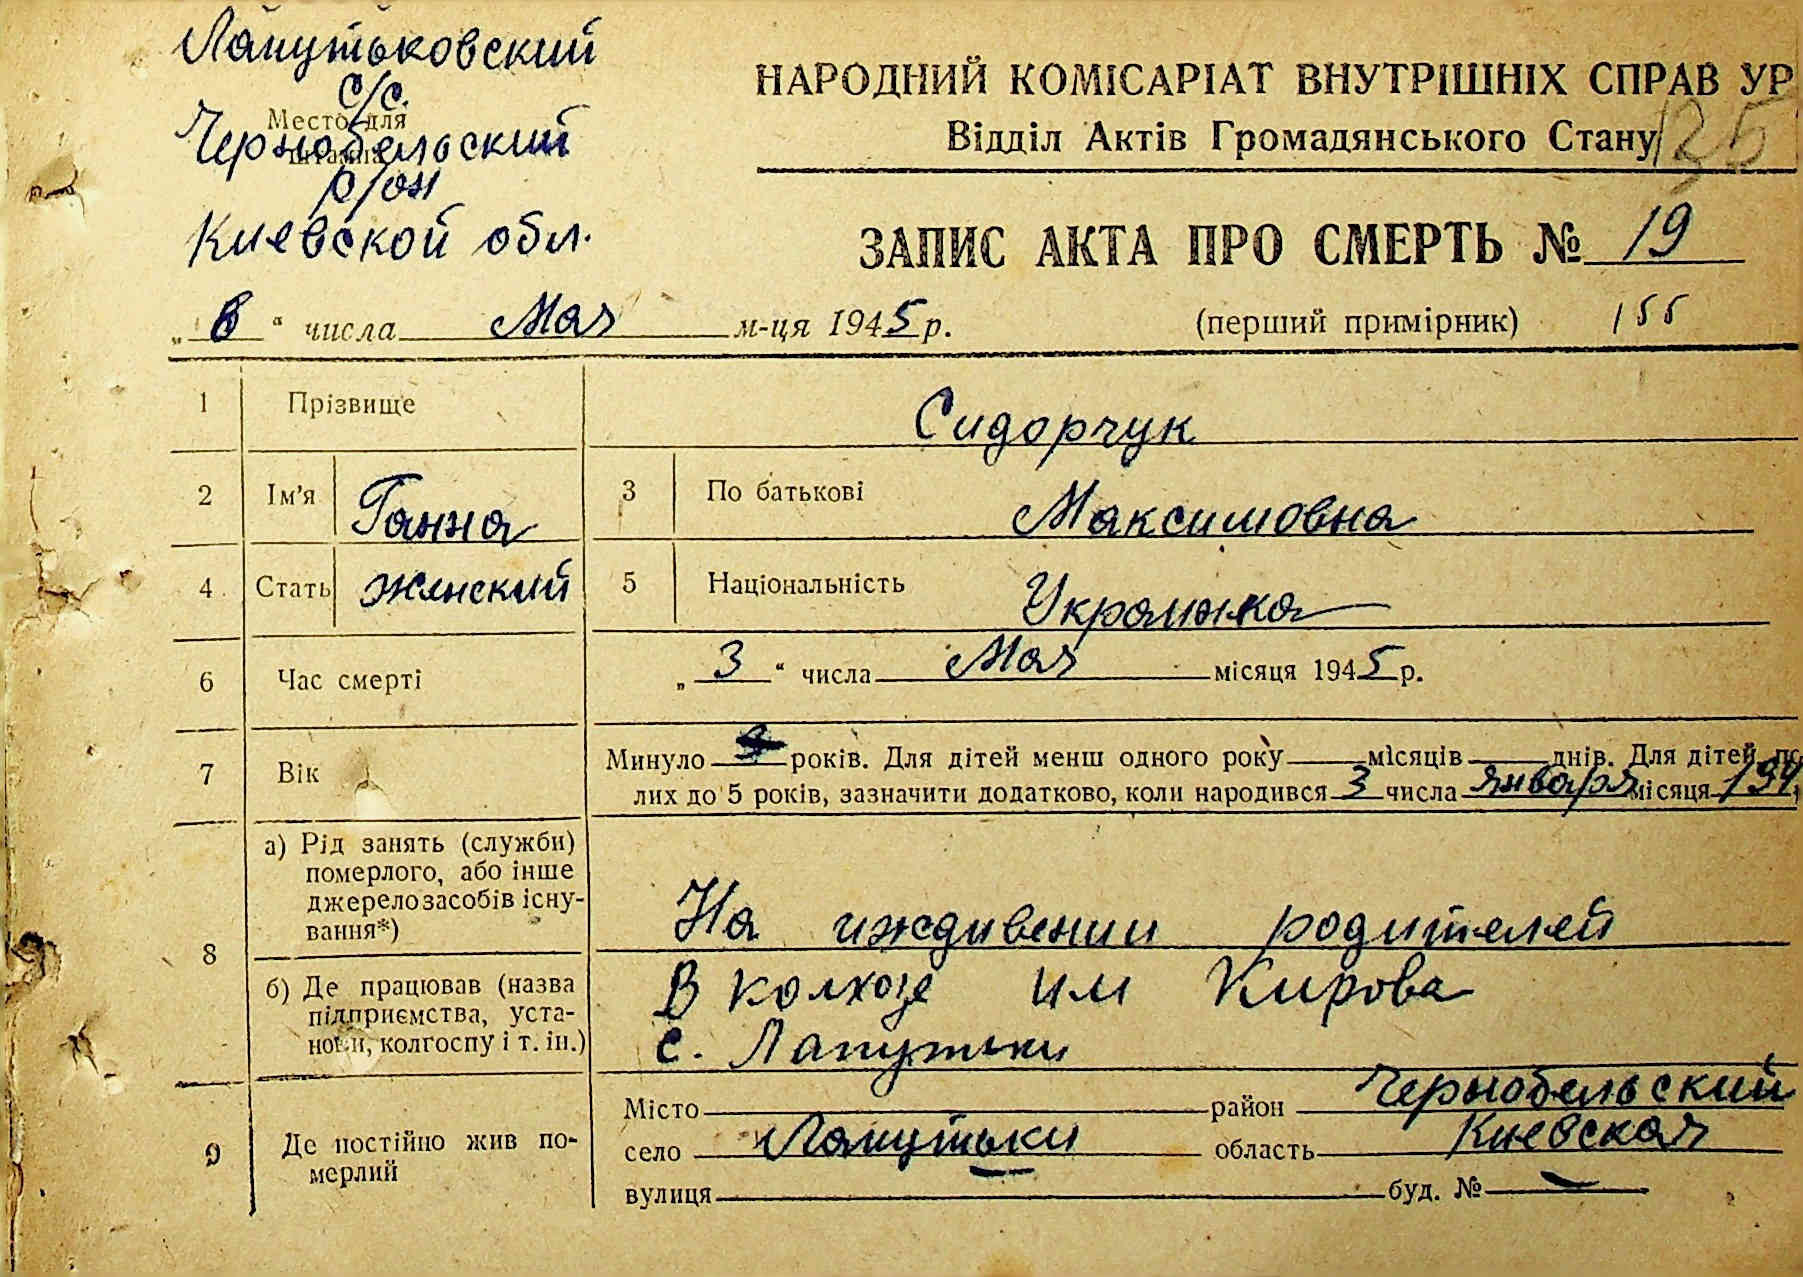 Лапутьковский
с/с.
Место для
штампа
Чернобельский
р/он
Киевской обл.
НАРОДНИЙ КОМІСАРІАТ ВНУТРІШНІХ СПРАВ УР
Відділ Актів Громадянського Стану
125
ЗАПИС АКТА ПРО СМЕРТЬ № 19
„ 6 “ числа Мая м-ця 1945 р. (перший примірник) 155
1 Прізвище Сидорчук
2 Ім’я Ганна 3 По батькові Максимовна
4 Стать женский 5 Національність Украинка
6 Час смерті „ 3 “ числа Мая місяця 1945 р.
7 Вік Минуло років. Для дітей менш одного року місяців днів. Для дітей, по
лих до 5 років, зазначити додатково, коли народився 3 числа января місяця 194
8 а) Рід занять (служби)
померлого, або інше
джерело засобів існу-
вання*)
На иждивении родителей
б) Де працював (назва
підприємства, уста-
нови, колгоспу і т. ін.)
В колхозе им Кирова
с. Лапутьки
9 Де постійно жив по-
мерлий
Місто район Чернобельский
село Лапутьки область Киевская
вулиця буд. № —